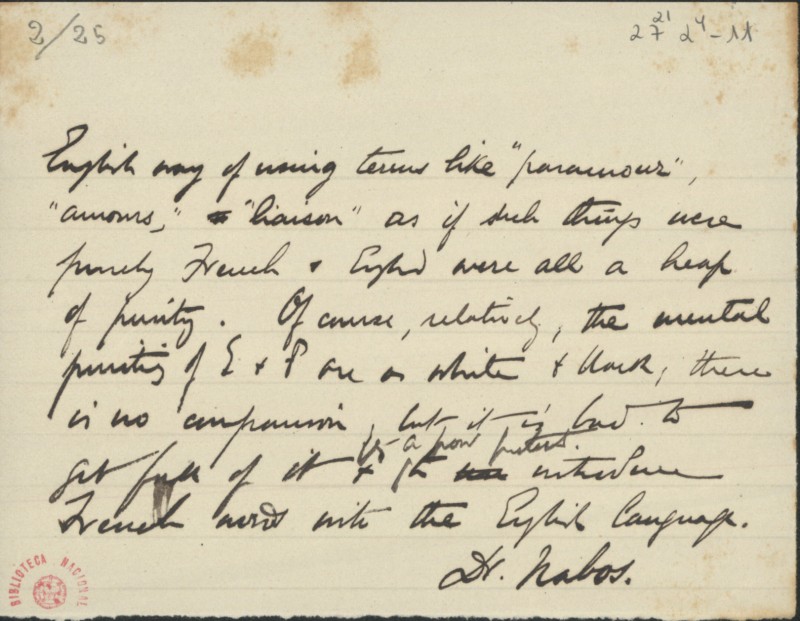 2/25
27 21 24-11
English way of using terms like "paramour",
"amours," "liaison" as if such things were
purely French & English were all a heap
of purity. Of course, relatively, the mental
purities of E & F are as white & black; there
is no comparison, but it is bad to
a poor pretext.
get full of it & to introduce
French words into the English language.
Dr. Nabos.
BIBLIOTECA NACIONAL